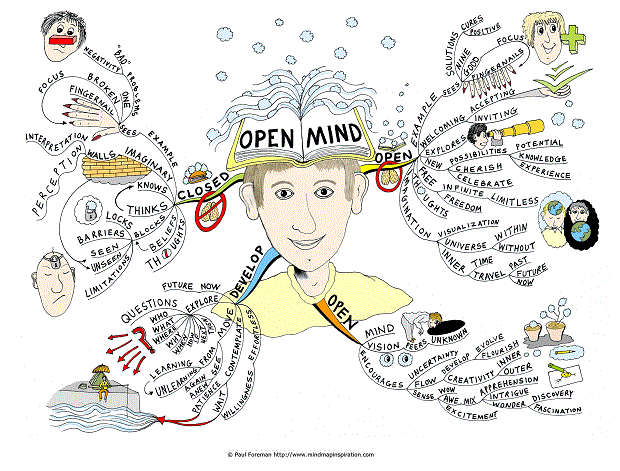 OPEN MIND
CLOSED
EXAMPLE
SEES
BROKEN
ONE
FINGERNAIL
"BAD"
PROBLEMS
NEGATIVITY
FOCUS
INTERPRETATION
PERCEPTION
WALLS
IMAGINARY
KNOWS
THINKS
BLOCKS
BELIEFS
THOUGHTS
LOCKS
BARRIERS
SEEN
UNSEEN
LIMITATIONS
OPEN
EXAMPLE
SEES
NINE
GOOD
FINGERNAILS
SOLUTIONS
CURES
POSITIVE
FOCUS
WELCOMING
ACCEPTING
INVITING
EXPLORES
NEW
POSSIBILITIES
POTENTIAL
KNOWLEDGE
EXPERIENCE
FREE
THOUGHTS
CHERISH
CELEBRATE
INFINITE
LIMITLESS
FREEDOM
IMAGINATION
VISUALIZATION
UNIVERSE
WITHIN
WITHOUT
INNER
TIME
TRAVEL
PAST
FUTURE
NOW
DEVELOP
FUTURE NOW
EXPLORE
QUESTIONS
WHO
WHAT
WHERE
WHY
MOVE
LEARNING
UNLEARNING
FROM
SELF
AGAIN
CONTEMPLATE
PATIENCE
WAIT
WILLINGNESS
EFFORTLESS
OPEN
MIND
VISION
PEERS
UNKNOWN
ENCOURAGES
UNCERTAINTY
FLOW
DEVELOP
EVOLVE
FLOURISH
CREATIVITY
INNER
OUTER
SENSE
WOW
AWE
MIX
APPREHENSION
INTRIGUE
WONDER
DISCOVERY
FASCINATION
EXCITEMENT
© Paul Foreman http://www.mindmapinspiration.com